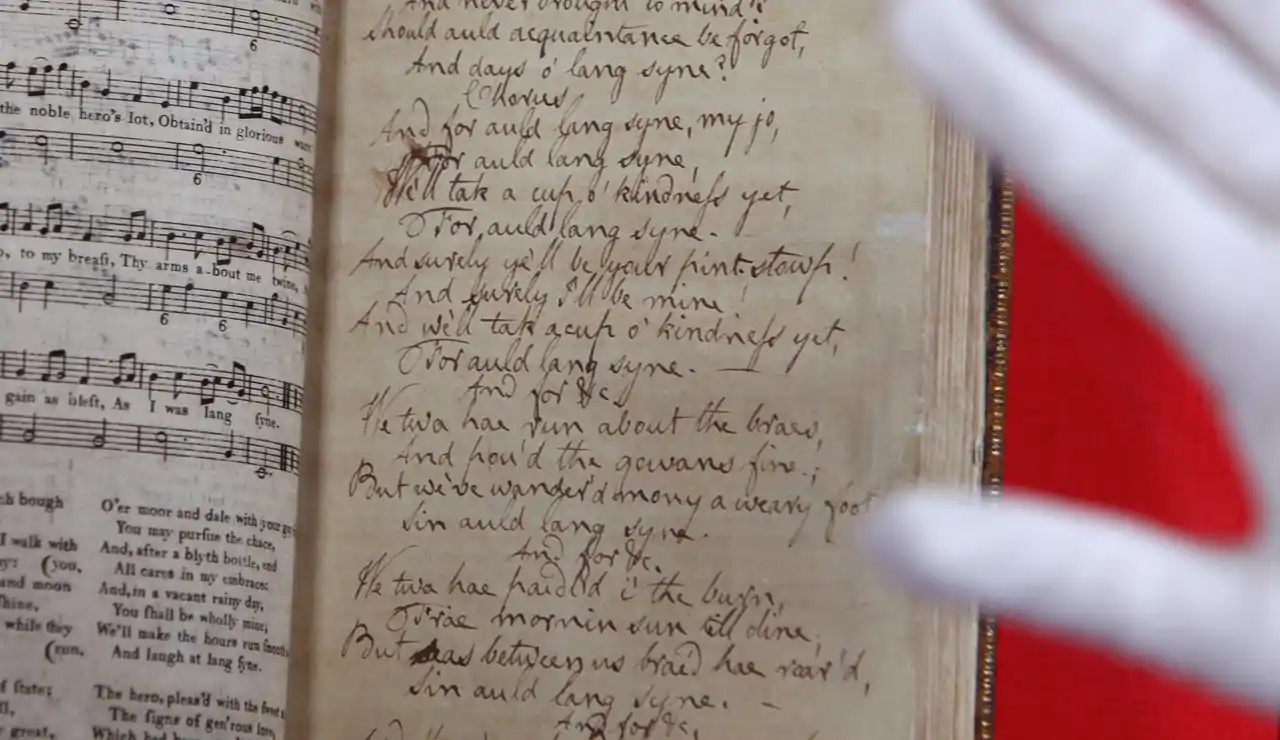 the noble hero's lot, Obtain'd in glorious
6
6
to my breaſt, Thy arms a-bout me twine,
6
6
gain as bleſt, As I was lang ſyne.
ch bough
I walk with
(you,
and moon
ſhine,
while they
(run,
of ſtate;
great,
O'er moor and dale with your
You may purſue the chace,
And, after a blyth bottle, end
All cares in my embrace:
And, in a vacant rainy day,
You ſhall be wholly mine;
We'll make the hours run ſmooth
And laugh at lang ſyne.
The hero, pleas'd with the ſweet
The ſigns of gen'rous love,
Which had
And never brought to mind?
Should auld acquaintance be forgot,
And days o' lang syne?
Chorus
And for auld lang syne, my jo,
For auld lang syne,
We'll tak a cup o' kindneſs yet,
For auld lang syne.
And surely ye'll be your pint-stowp!
And surely I'll be mine!
And we'll tak a cup o' kindneſs yet,
For auld lang syne.
And for &c.
We twa hae run about the braes,
And pou'd the gowans fine;
But we've wander'd mony a weary foot
Sin auld lang syne.
And for &c.
We twa hae paidl'd i' the burn,
Frae mornin sun till dine;
But seas between us braid hae roar'd,
Sin auld lang syne.
And for &c.